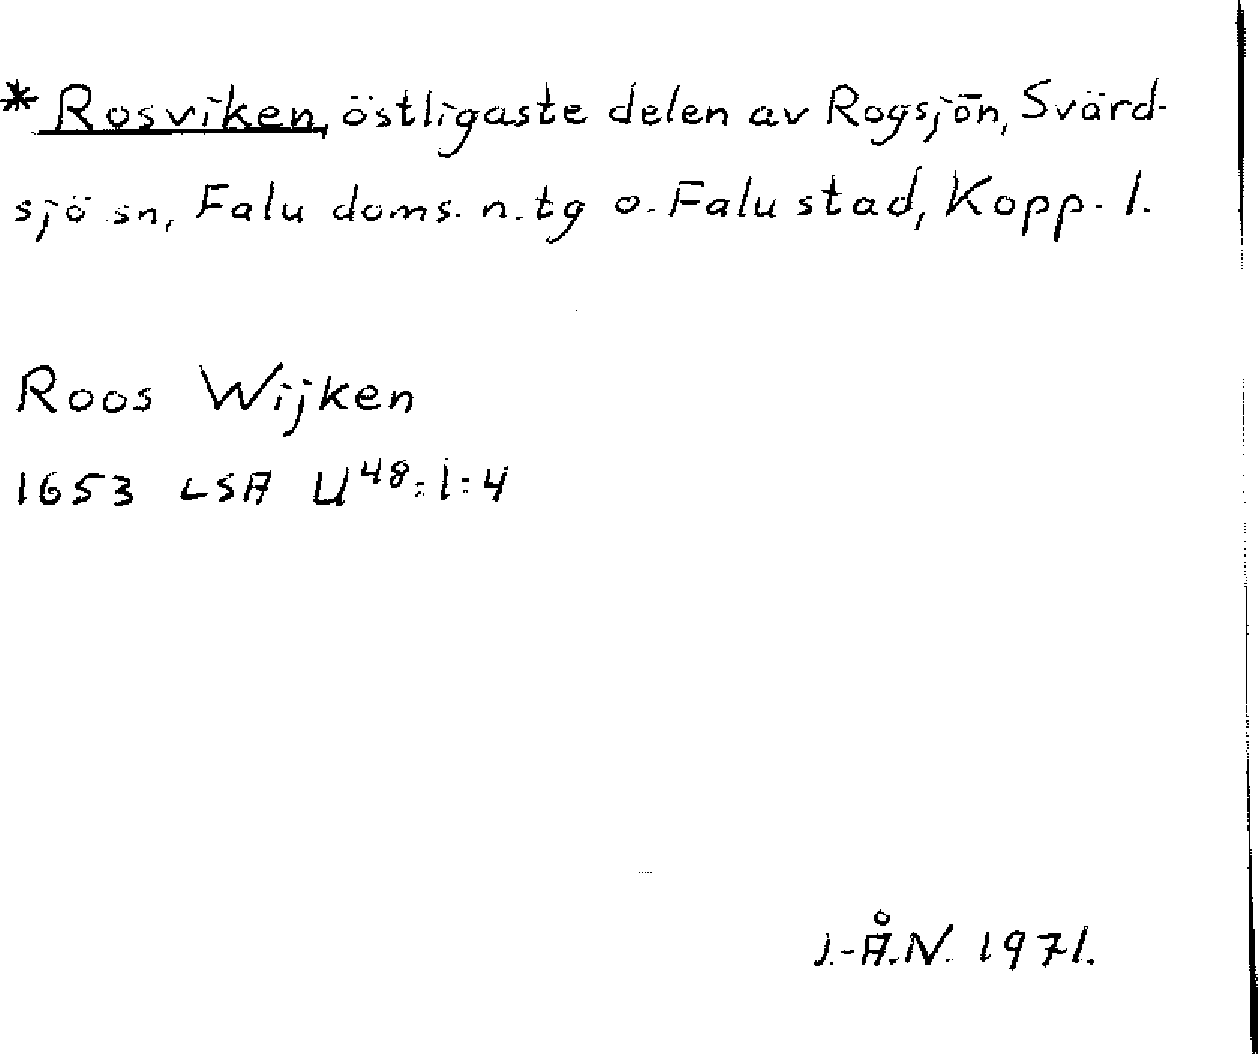 * Rosviken, östligaste delen av Rogsjön, Svärd-
sjö sn, Falu doms. n. tg o. Falu stad, Kopp. l.
Roos Wijken
1653 LSA U48:1:4
J.-Å.N. 1971.